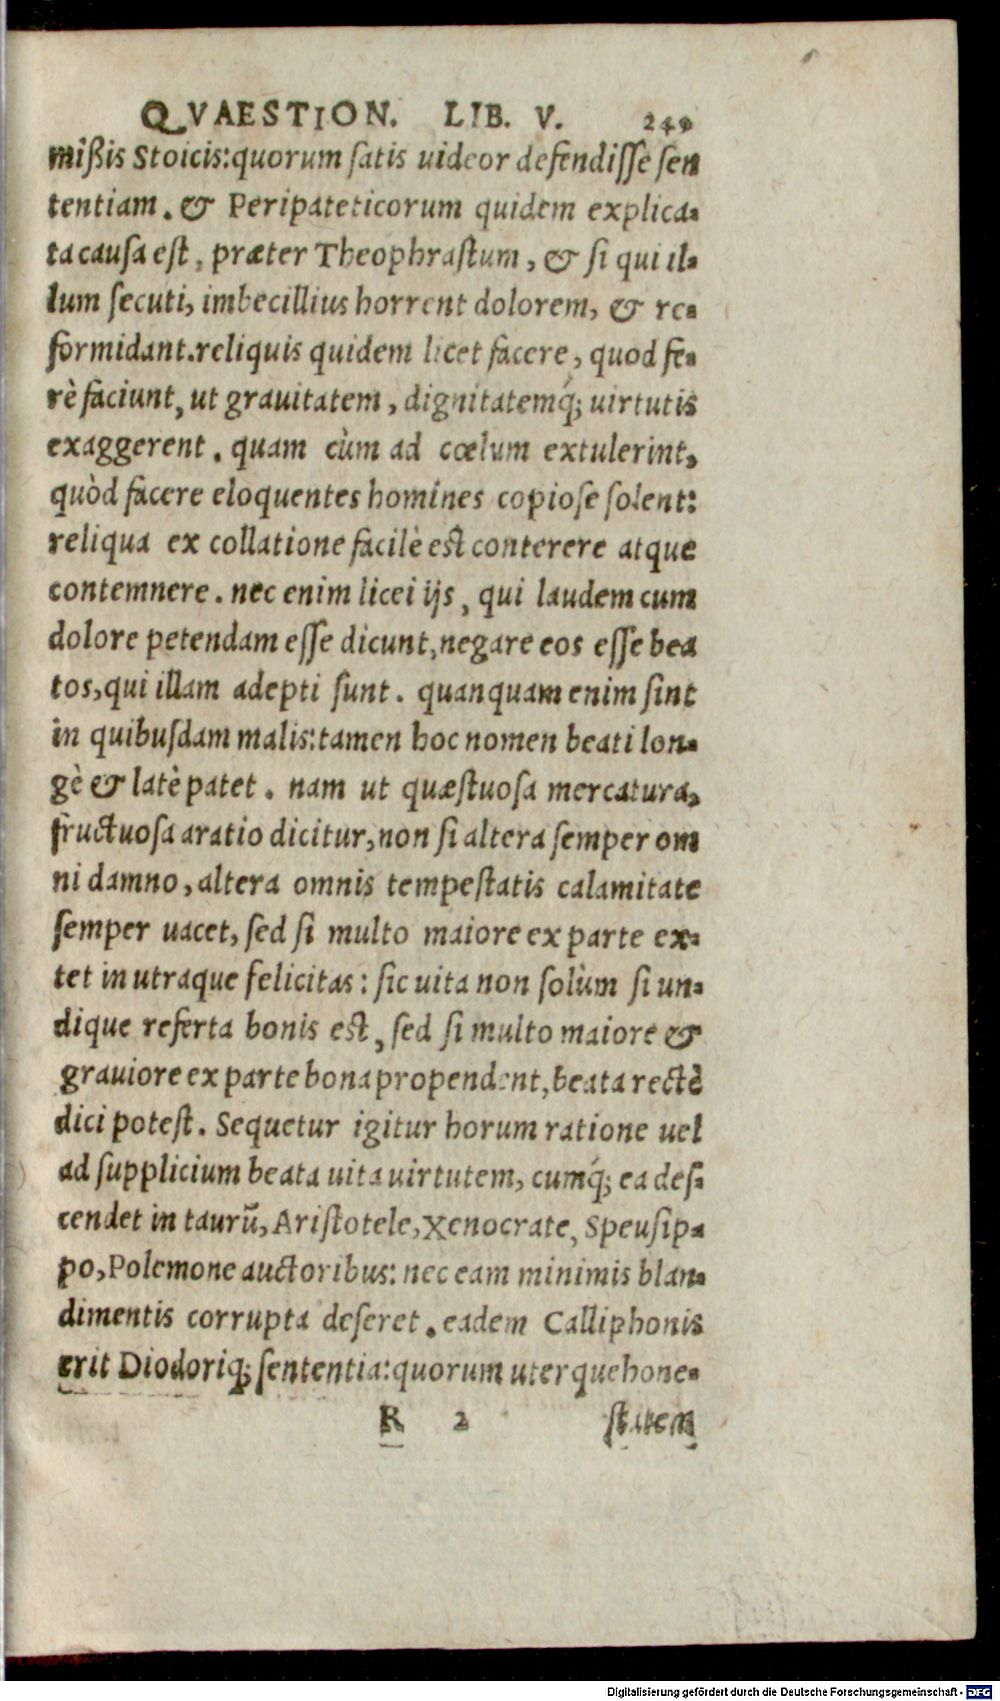 QVAESTION. LIB. V. 249
mißis Stoicis:quorum ſatis uideor defendiſſe ſen
tentiam. & Peripateticorum quidem explica-
ta cauſa eſt, præter Theophraſtum, & ſi qui il-
lum ſecuti, imbecillius horrent dolorem, & re-
formidant.reliquis quidem licet facere, quod fe-
rè faciunt, ut grauitatem, dignitatemq́; uirtutis
exaggerent. quam cùm ad cœlum extulerint,
quòd facere eloquentes homines copioſe ſolent:
reliqua ex collatione facilè eſt conterere atque
contemnere. nec enim licei ijs, qui laudem cum
dolore petendam eſſe dicunt, negare eos eſſe bea
tos, qui illam adepti ſunt. quanquam enim ſint
in quibuſdam malis: tamen hoc nomen beati lon-
gè & latè patet. nam ut quæſtuoſa mercatura,
fructuoſa aratio dicitur, non ſi altera ſemper om
ni damno, altera omnis tempeſtatis calamitate
ſemper uacet, ſed ſi multo maiore ex parte ex-
tet in utraque felicitas: ſic uita non ſolùm ſi un-
dique referta bonis eſt, ſed ſi multo maiore &
grauiore ex parte bona propendent, beata rectè
dici poteſt. Sequetur igitur horum ratione uel
ad ſupplicium beata uita uirtutem, cumq́; ea deſ-
cendet in taurū, Ariſtotele, Xenocrate, Speuſip-
po, Polemone auctoribus: nec eam minimis blan-
dimentis corrupta deſeret. eadem Calliphonis
erit Diodoriq; ſententia: quorum uterque hone-
R 2 ſtatem
Digitalisierung gefördert durch die Deutsche Forschungsgemeinschaft - DFG